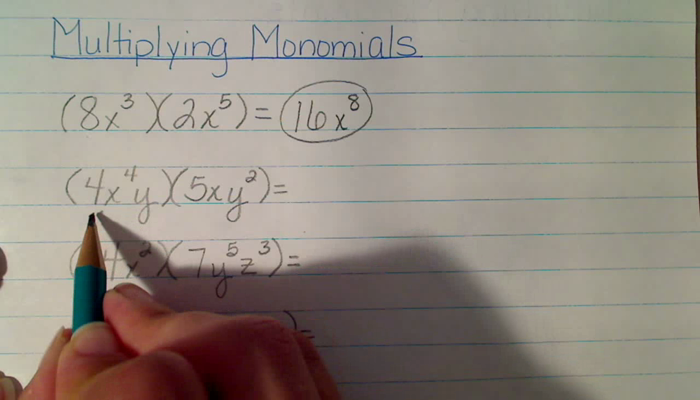 Multiplying Monomials
(8x³)(2x⁵) = 16x⁸
(4x⁴y)(5xy²) =
4x²)(7y⁵z³) =
) =